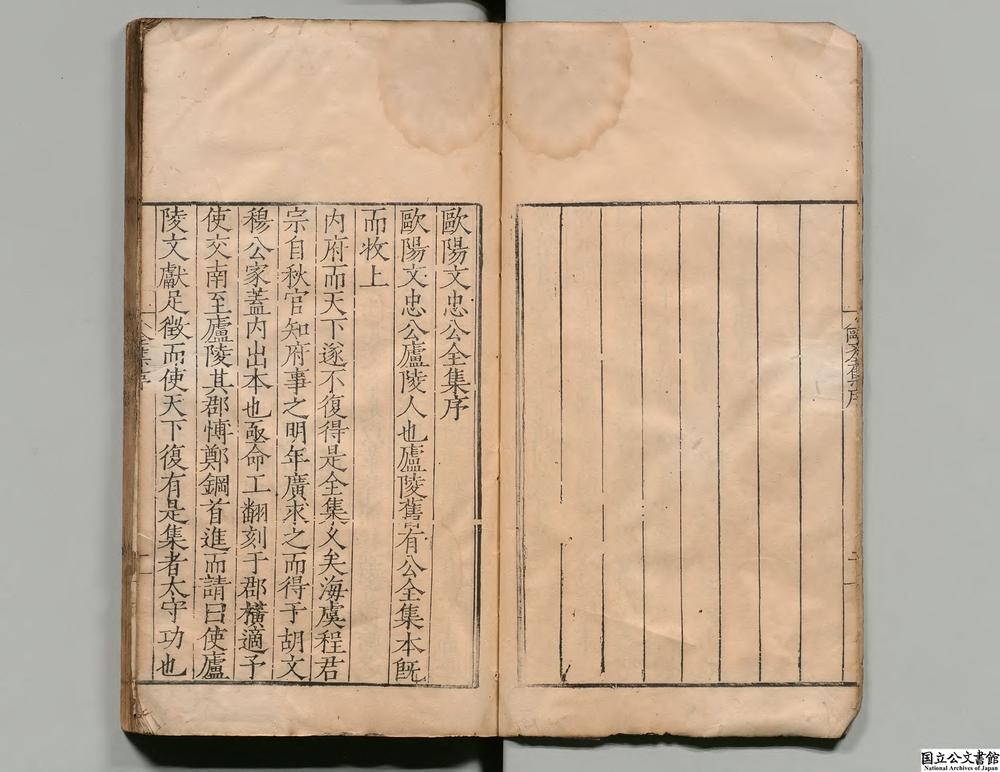 歐陽文忠公全集序
歐陽文忠公廬陵人也廬陵舊有公全集本旣
而牧上
内府而天下遂不復得是全集久矣海虞程君
宗自秋官知府事之明年廣求之而得于胡文
穆公家蓋内出本也亟命工翻刻于郡黌適予
使交南至廬陵其郡博鄭鋼首進而請曰使廬
陵文獻足徵而使天下復有是集者太守功也
国立公文書館
National Archives of Japan